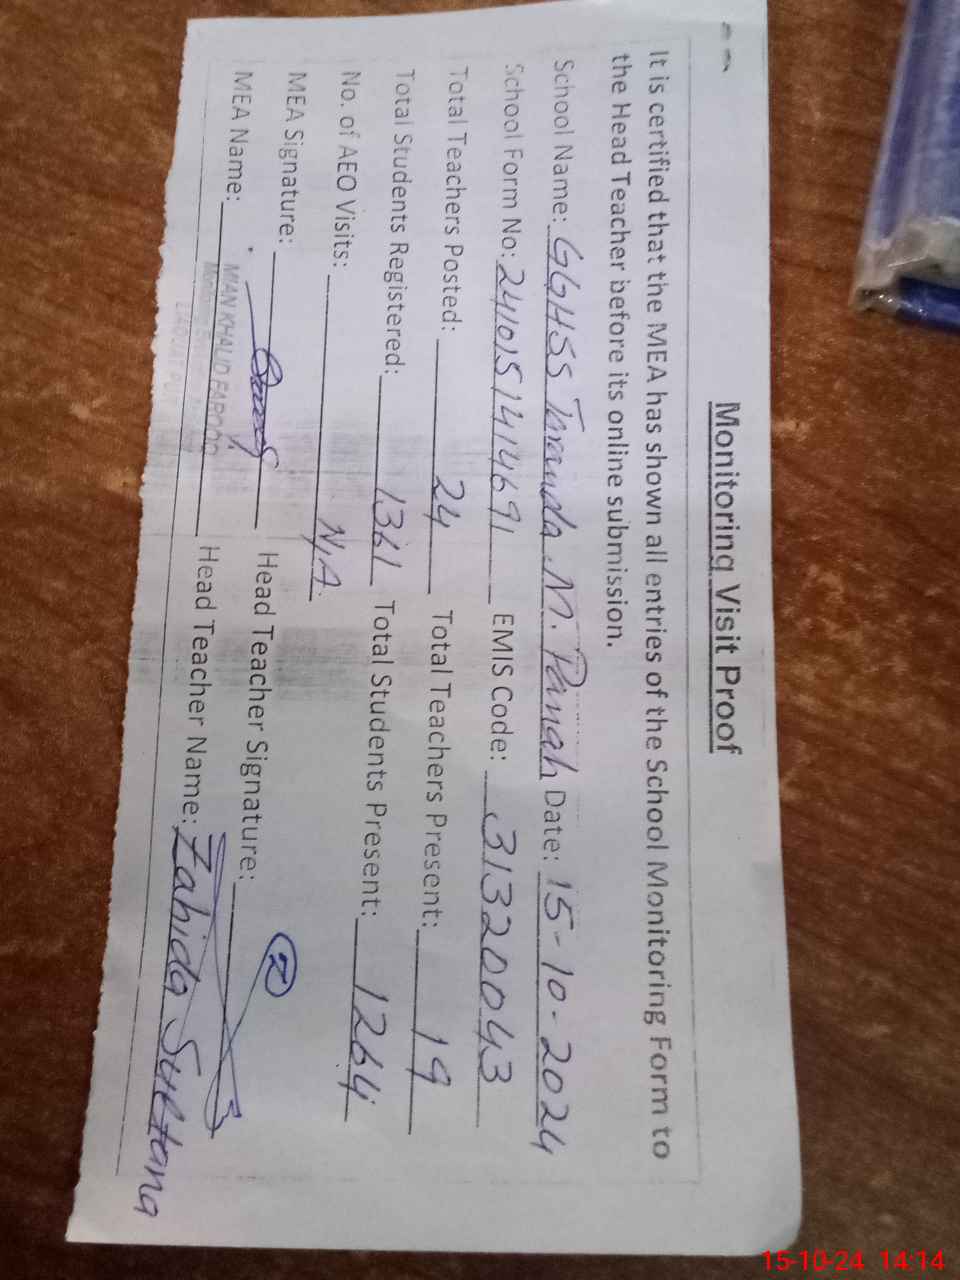 Monitoring Visit Proof
It is certified that the MEA has shown all entries of the School Monitoring Form to
the Head Teacher before its online submission.
School Name: GGHSS Taranda M. Panah Date: 15-10-2024
School Form No: 241015141469 1 EMIS Code: 31320043
Total Teachers Posted: 24 Total Teachers Present: 19
Total Students Registered: 1361 Total Students Present: 1264
No. of AEO Visits: N.A.
MEA Signature: Head Teacher Signature:
MEA Name: MIAN KHALID FAROOQ Head Teacher Name: Zahida Sultana
15-10-24 14:14